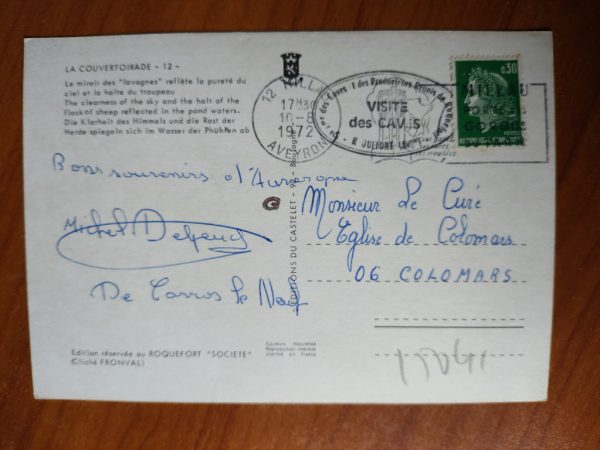 LA COUVERTOIRADE - 12 -
Le miroir des "lavognes" reflète la pureté du
ciel et la halte du troupeau
The clearness of the sky and the halt of the
flock of sheep reflected in the pond waters.
Die Klarheit des Himmels und die Rast der
Herde spiegeln sich im Wasser der Phühten ab
12 MILLAU
17H30
10-8
1972
AVEYRON
VISITE
des CAVES
ROQUEFORT
0,30
MILLAU
GORGES
REPUBLIQUE FRANÇAISE
Bons souvenirs d'Auvergne
Michel
De Carros le Neuf
EDITIONS DU CASTELET
Monsieur Le Curé
Eglise de Colomars
06 COLOMARS
Edition réservée au ROQUEFORT "SOCIETE"
(Cliché FRONVAL)
Couleurs Naturelles
Reproduction interdite
Imprimé en France